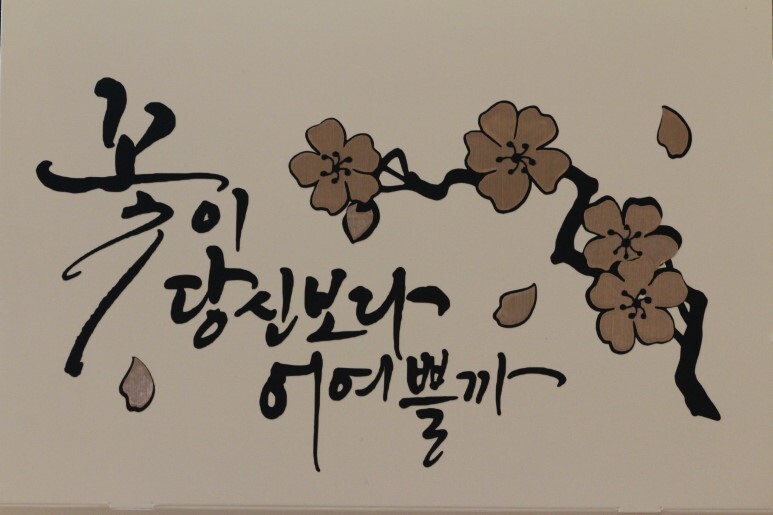 꽃이
당신보다
어여쁠까